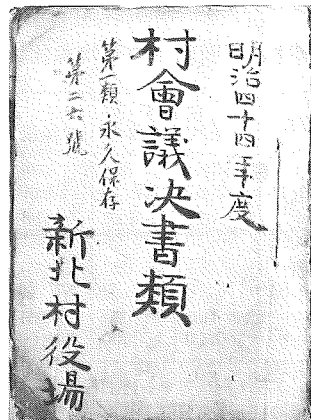 明治四十四年度
村會議决書類
第一類 永久保存
第二六號
新北村役場